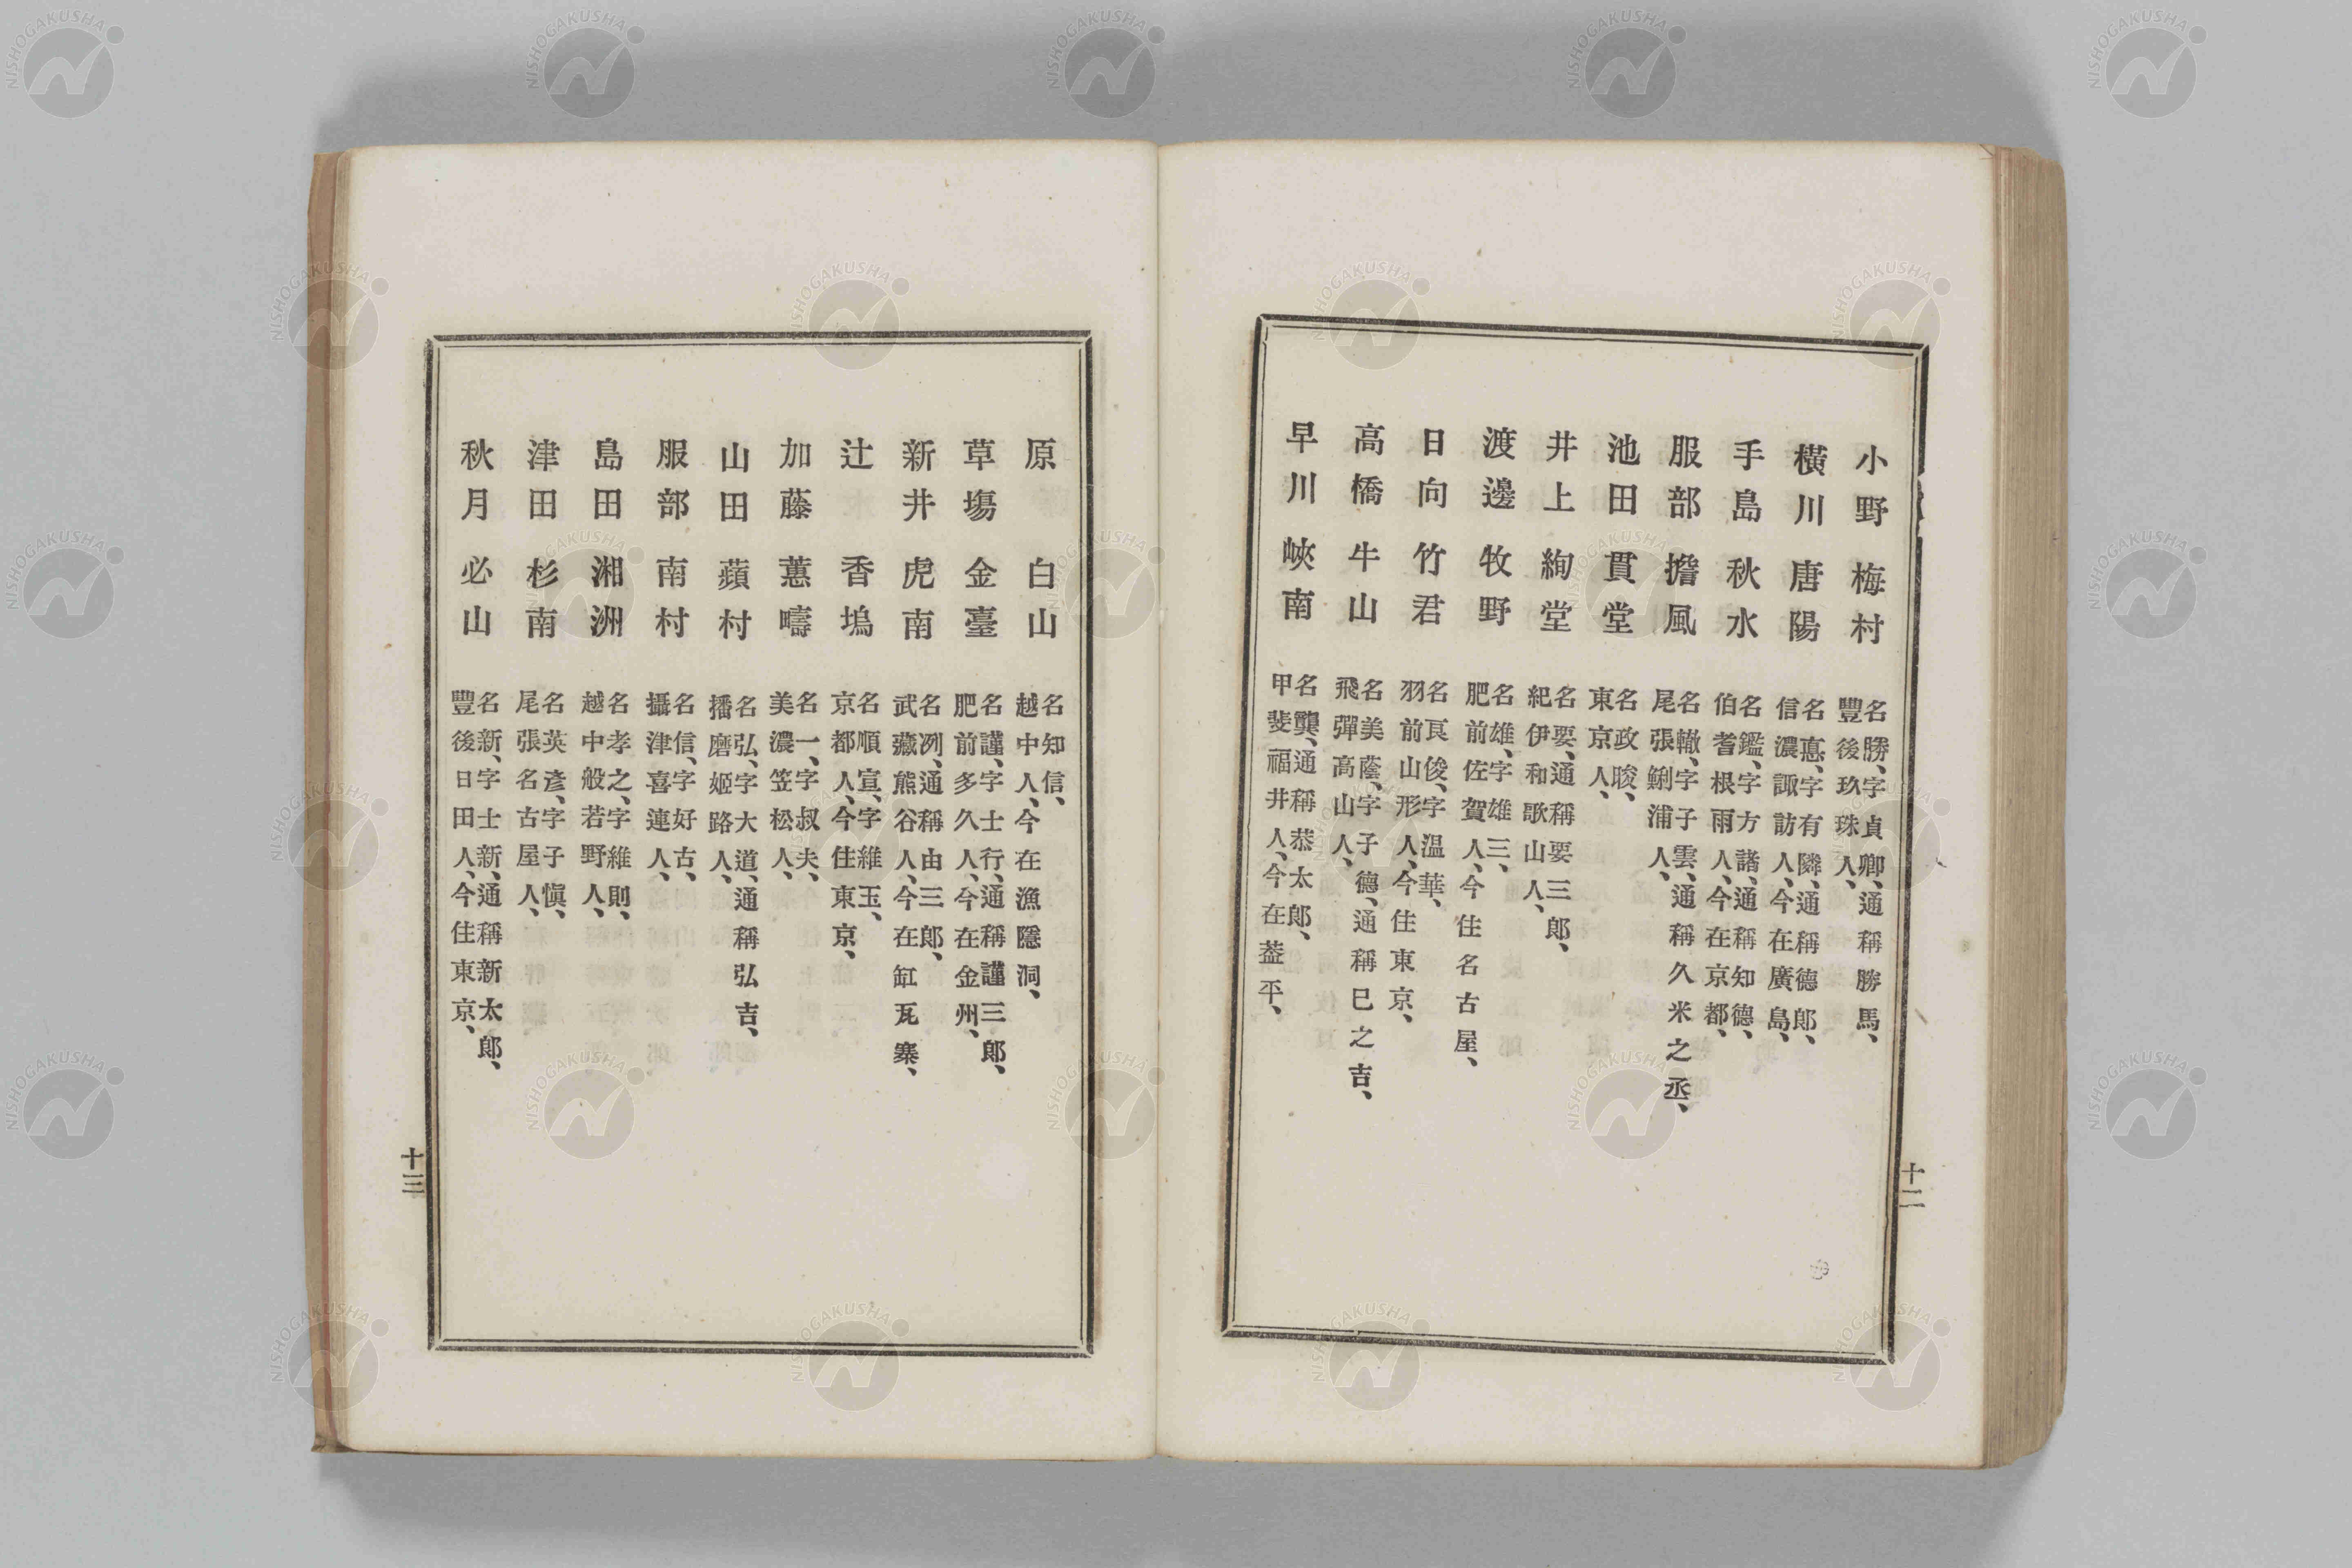 小野梅村
名勝、字貞卿、通稱勝馬、
豐後玖珠人、
橫川唐陽
名悳、字有隣、通稱德郎、
信濃諏訪人、今在廣島、
手島秋水
名鑑、字方諸、通稱知德、
伯耆根雨人、今在京都、
服部擔風
名轍、字子雲、通稱久米之丞、
尾張鯏浦人、
池田貫堂
名政晙、
東京人、
井上絢堂
名要、通稱要三郎、
紀伊和歌山人、
渡邊牧野
名雄、字雄三、
肥前佐賀人、今住名古屋、
日向竹君
名良俊、字溫華、
羽前山形人、今住東京、
高橋牛山
名美蔭、字子德、通稱巳之吉、
飛彈高山人、
早川峽南
名龔、通稱恭太郎、
甲斐福井人、今在葢平、
十二
原白山
名知信、
越中人、今在漁隱洞、
草塲金臺
名謹、字士行、通稱謹三郎、
肥前多久人、今在金州、
新井虎南
名冽、通稱由三郎、
武藏熊谷人、今在缸瓦寨、
辻香塢
名順宣、字維玉、
京都人、今住東京、
加藤蕙疇
名一、字叔夫、
美濃笠松人、
山田蘋村
名弘、字大道、通稱弘吉、
播磨姬路人、
服部南村
名信、字好古、
攝津喜連人、
島田湘洲
名孝之、字維則、
越中般若野人、
津田杉南
名英彥、字子愼、
尾張名古屋人、
秋月必山
名新、字士新、通稱新太郎、
豐後日田人、今住東京、
十三
NISHOGAKUSHA